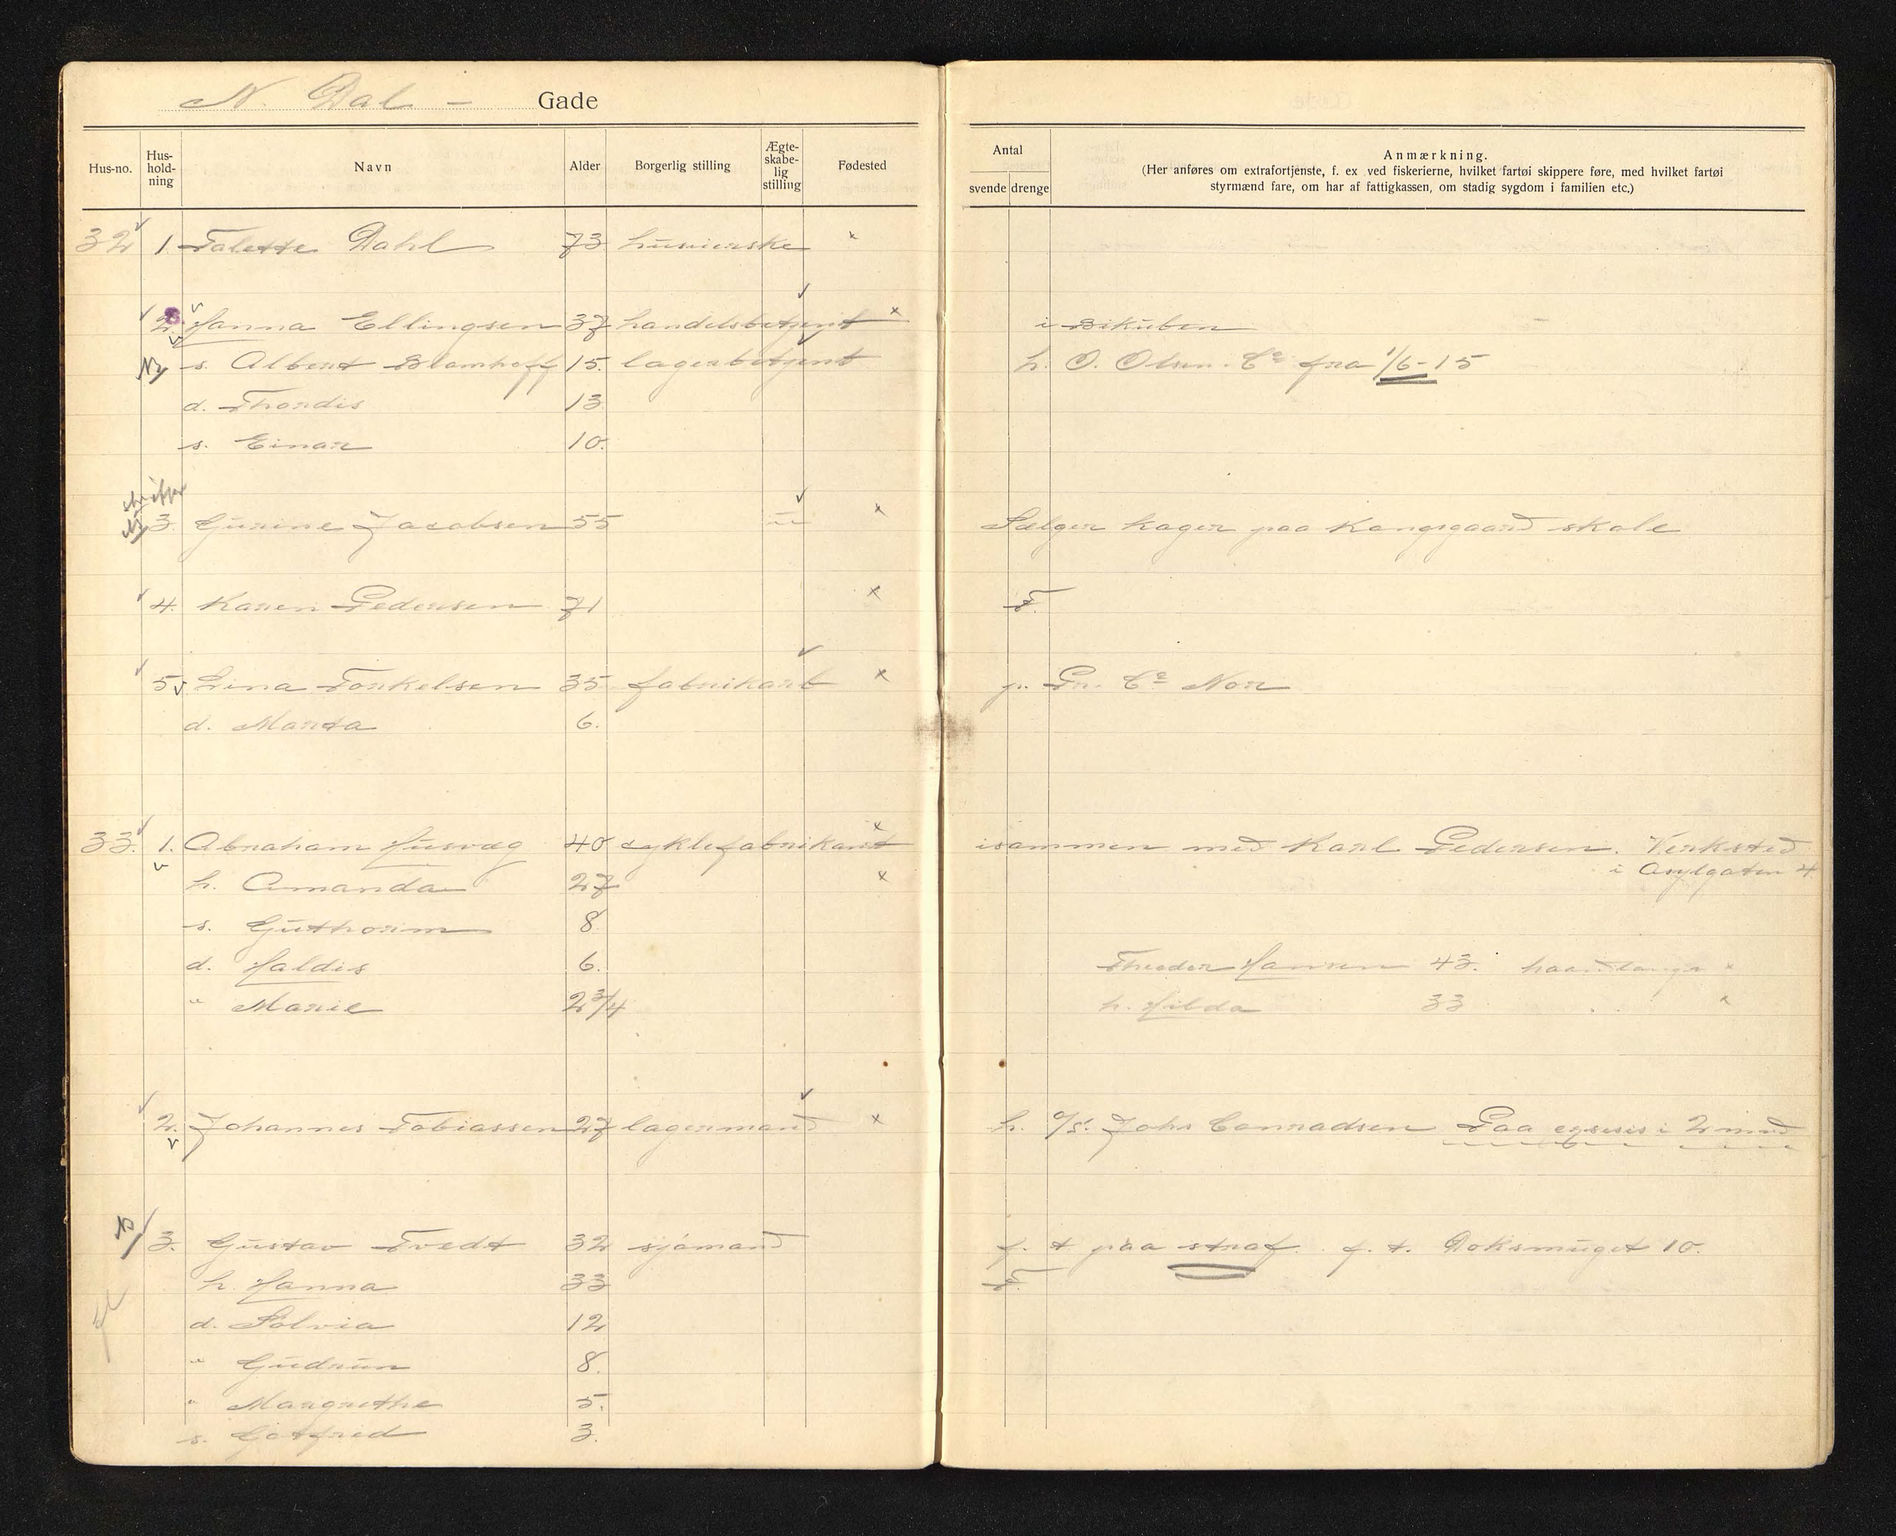 N. Dal - Gade
Hus-no. Hus-hold-ning Navn Alder Borgerlig stilling Ægte-skabe-lig stilling Fødested
Antal
svende drenge
Anmærkning.
(Her anføres om extrafortjenste, f. ex ved fiskerierne, hvilket fartøi skippere føre, med hvilket fartøi
styrmænd fare, om har af fattigkassen, om stadig sygdom i familien etc.)
32 1. Talette Dahl 73 huseierske x
2. Hanna Ellingsen 37 handelsbetjent x i Bikuben
Ny s. Albert Blomhoff 15. lagerbetjent h. O. Olsen. Co fra 1/6-15
d. Thordis 13
s. Einar 10.
3. Gurine Jacobsen 55 u x Sælger kager paa Kongsgaard skole
4. Karen Pedersen 71 x F.
5 Lina Torkelsen 35 fabrikarb x p. Pr. Co Nor
d. Marta 6.
33. 1. Abraham Husvæg 40 cyklefabrikant x isammen med Karl Pedersen. Verksted
i Asylgaten 4
h. Amanda 27 x
s. Guthorm 8.
d. Haldis 6. Theodor Hansen 43. haandlanger x
" Marie 2 3/4 h. Hilda 33 x
2. Johannes Tobiassen 27 lagermand x h. A/S. Johs Conradsen Paa exsesis i 2 mnd
Ny 3. Gustav Tvedt 32 sjømand f. t paa straf. f. t. Doksmuget 10.
h. Hanna 33 F.
d. Solvia 12
" Gudrun 8.
" Margrethe 5.
s. Gotfred 3.